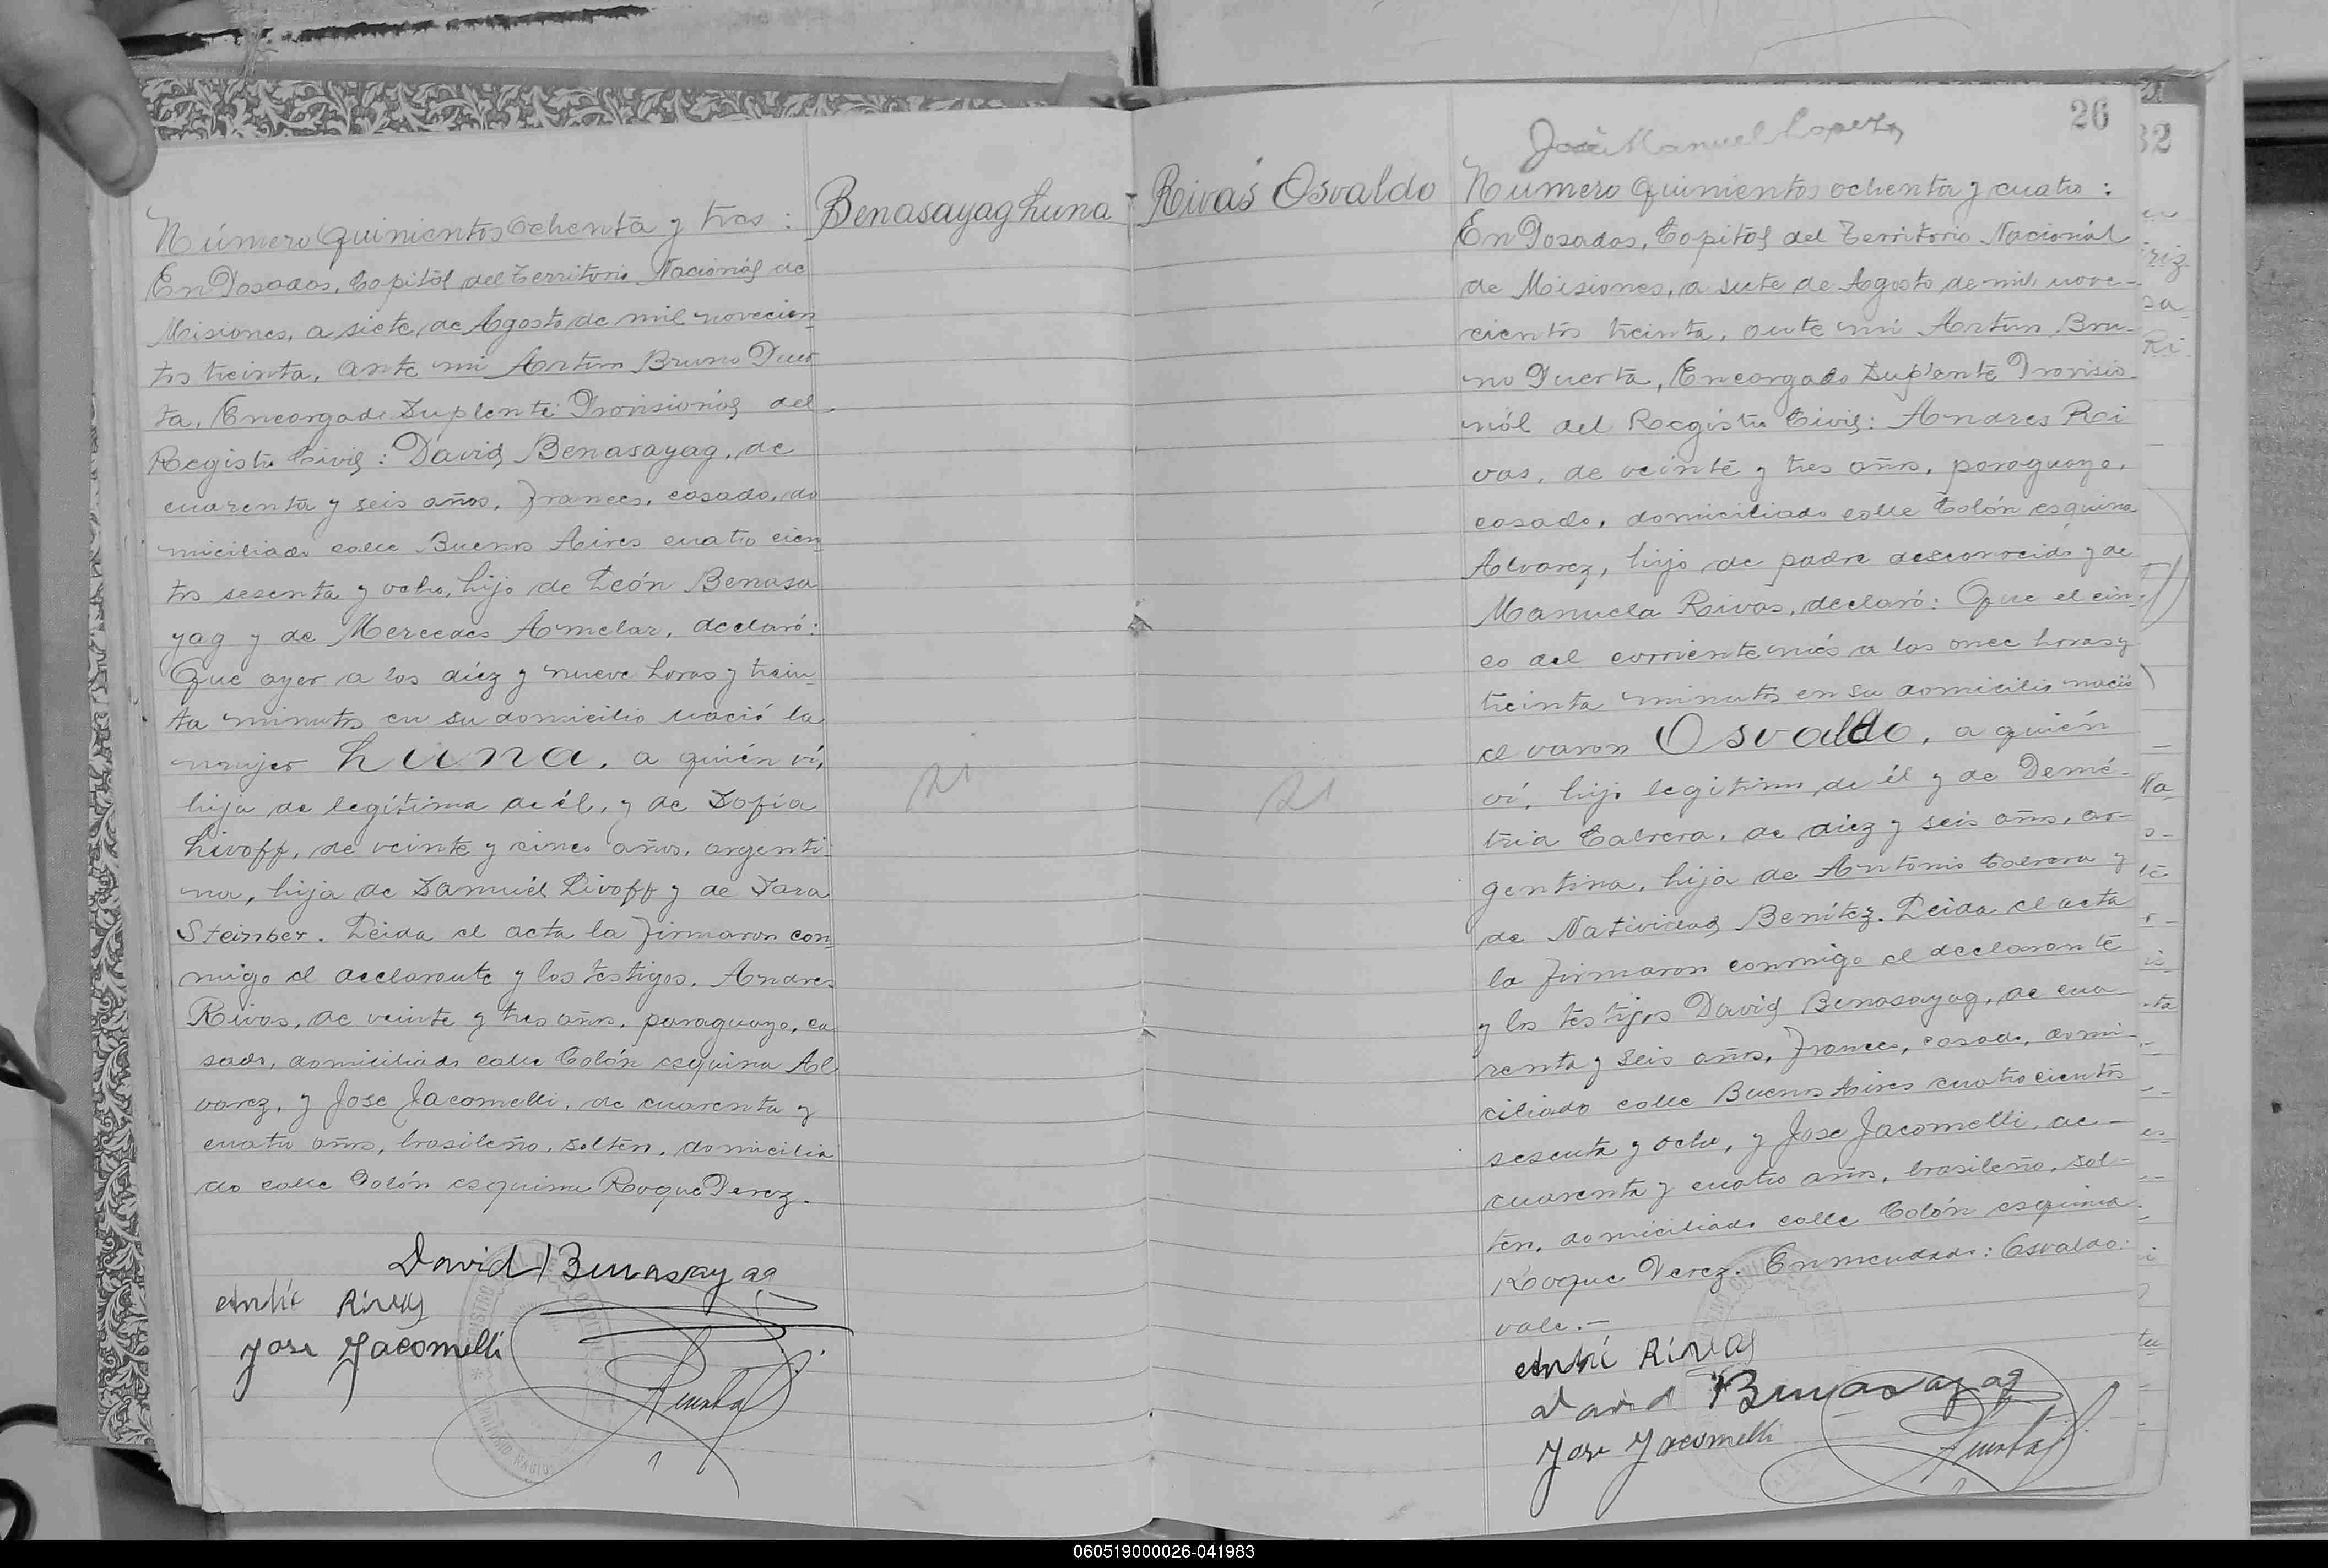 Número quinientos ochenta y tres:
En Posadas, Capital del Territorio Nacional de
Misiones, a siete de Agosto de mil novecien
tos treinta, ante mi Artúro Bruno Puer
ta, Encargado Suplente Provisional del
Registro Civil: David Benasayag, de
cuarenta y seis años, frances, casado, do
miciliado calle Buenos Aires cuatro cien
tos sesenta y ocho, hijo de León Benasa
yag y de Mercedes Amelar, declaró:
Que ayer a las diéz y nueve horas y trein
ta minutos en su domicilio nació la
mujer Luna, a quién ví,
hija de legítima de él, y de Sofía
Livoff, de veinte y cinco años, argenti
na, hija de Samuél Livoff y de Sara
Steinber. Leida el acta la firmaron con
migo el declarante y los testigos, Andres
Rivas, de veinte y tres años, paraguayo, ca
sado, domiciliado calle Colón esquina Al
varez, y Jose Jacomelli, de cuarenta y
cuatro años, brasileño, soltero, domicilia
do calle Colón esquina Roque Perez.
David Benasayag
Rivas
Jose Jacomelli
Puerta
Benasayag Luna
Rivas Osvaldo
26
José Manuel Lopez
Número quinientos ochenta y cuatro:
En Posadas, Capital del Territorio Nacional
de Misiones, a siete de Agosto de mil nove-
cientos treinta, ante mi Artúro Bru-
no Puerta, Encargado Suplente Provisio
nál del Registro Civil: Andres Ri
vas, de veinte y tres años, paraguayo,
casado, domiciliado calle Colón esquina
Alvarez, hijo de padre desconocido y de
Manuela Rivas, declaró: Que el cin-
co del corriente més a las once horas y
treinta minutos en su domicilio nació
el varon Osvaldo, a quién
ví, hijo legítimo de él y de Demé-
tria Cabrera, de diez y seis años, ar-
gentina, hija de Antonio Cabrera y
de Natividad Benítez. Leida el acta
la firmaron conmigo el declarante
y los testigos David Benasayag, de cua
renta y seis años, frances, casado, domi-
ciliado calle Buenos Aires cuatrocientos
sesenta y ocho, y Jose Jacomelli, de-
cuarenta y cuatro años, brasileño, sol-
tero, domiciliado calle Colón esquina
Roque Perez. Enmendado: Osvaldo:
vale.-
Rivas
David Benasayag
Jose Jacomelli
Puerta
060519000026-041983